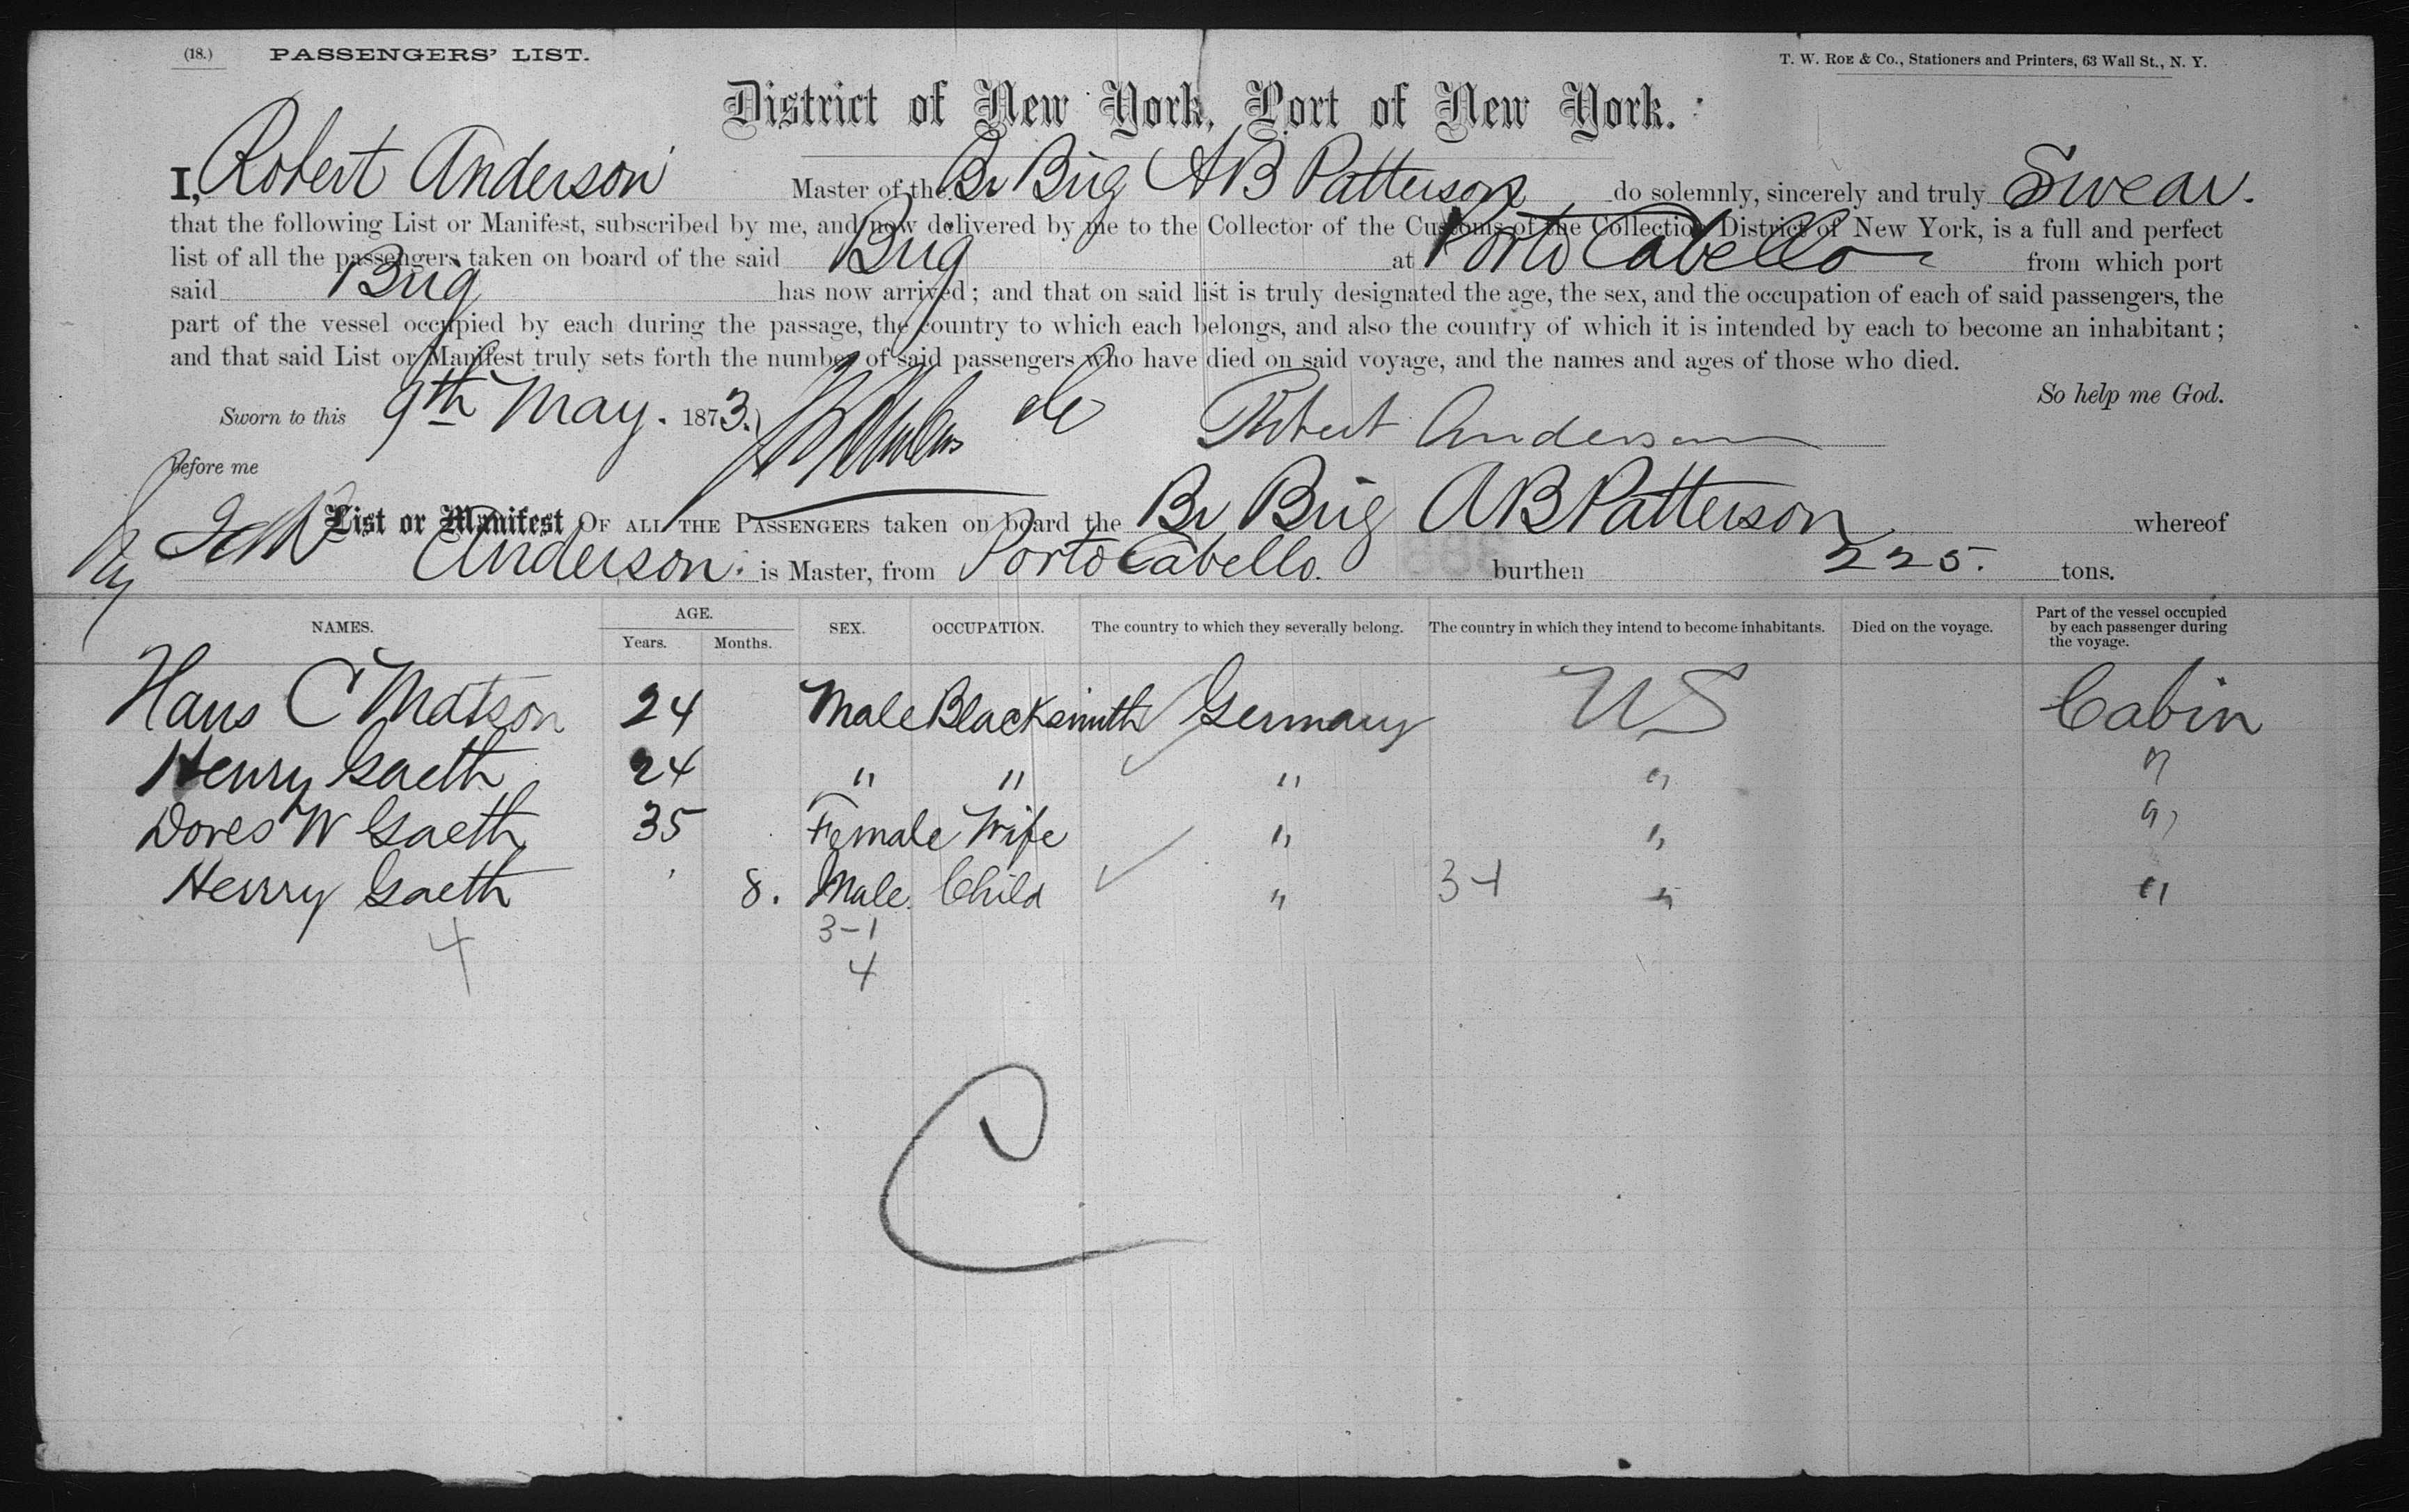 (18.) PASSENGERS' LIST. T. W. ROE & Co., Stationers and Printers, 63 Wall St., N. Y.
District of New York, Port of New York.
I, Robert Anderson Master of the Br Brig A B Patterson do solemnly, sincerely and truly Swear.
that the following List or Manifest, subscribed by me, and now delivered by me to the Collector of the Customs of the Collection District of New York, is a full and perfect
list of all the passengers taken on board of the said Brig at Porto Cabello from which port
said Brig has now arrived; and that on said list is truly designated the age, the sex, and the occupation of each of said passengers, the
part of the vessel occupied by each during the passage, the country to which each belongs, and also the country of which it is intended by each to become an inhabitant;
and that said List or Manifest truly sets forth the number of said passengers who have died on said voyage, and the names and ages of those who died.
So help me God.
Sworn to this 9th May. 1873. Robert Anderson
before me
List or Manifest OF ALL THE PASSENGERS taken on board the Br Brig A B Patterson whereof
Anderson. is Master, from Porto Cabello. burthen 225. tons.
NAMES. AGE. Years. Months. SEX. OCCUPATION. The country to which they severally belong. The country in which they intend to become inhabitants. Died on the voyage. Part of the vessel occupied by each passenger during the voyage.
Hans C Matson 24 Male Blacksmith Germany U S Cabin
Henry Gaeth 24 " " " " "
Dores W Gaeth 35 Female Wife " " "
Henry Gaeth 8. Male Child " 3-1 " "
4 3-1
4
C